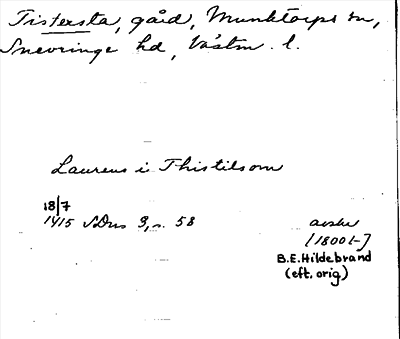 Tistersta, gård, Munktorps sn,
Snevringe hd, Västm. l.
Laurens i Thistilsom
18/7
1415 SDns 3, s. 58
avskr
[1800t-]
B.E. Hildebrand
(eft. orig)